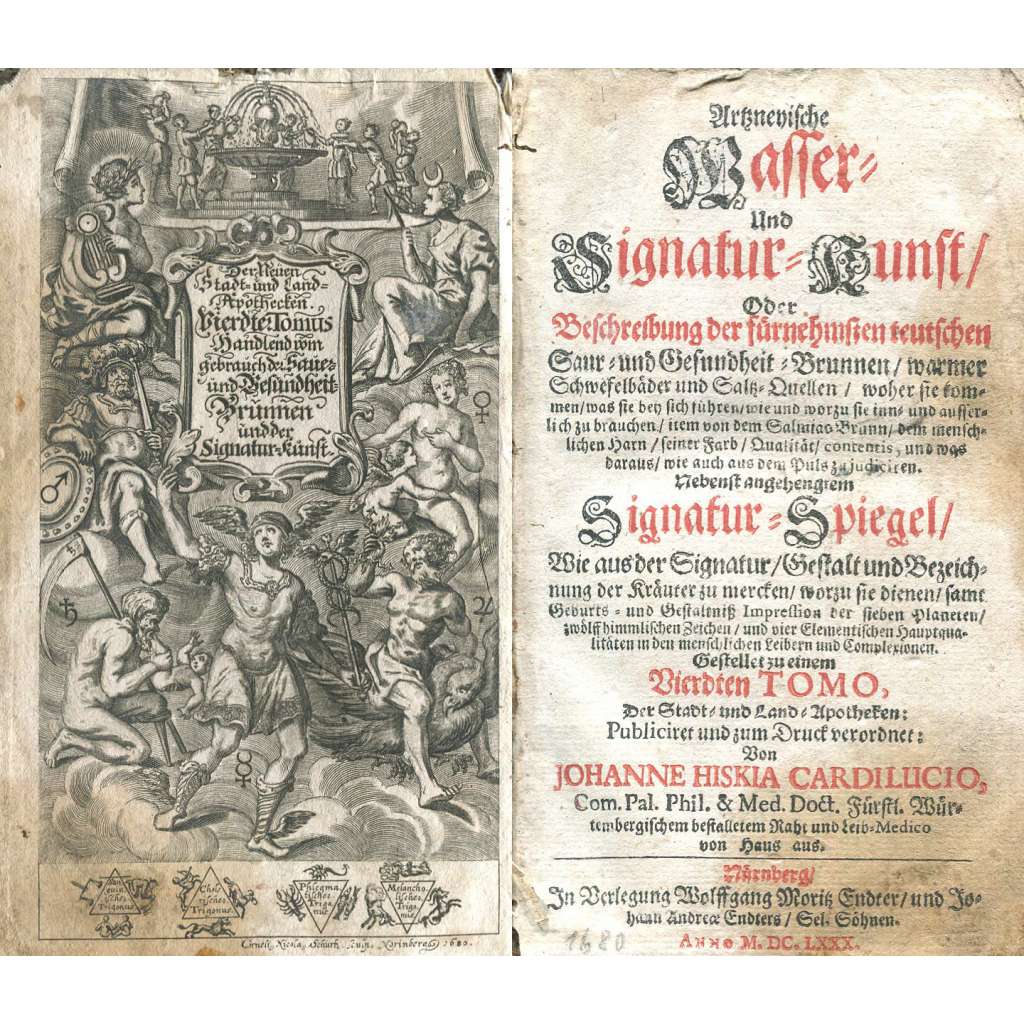 Der Neuen
Stadt- und Land-
Apothecken.
Vierdte Tomus
Handlend vom
gebrauch der Saur-
und Gesundheit-
Brunnen
und der
Signatur-Kunst.
♀
♂
♄
♃
☿
Sanguinisches
Trigonus
Cholerisches
Trigonus
Phlegmatisches
Trigonus
Melancholisches
Trigonus
Corneli, Nicola, Schurtz, Norinbergæ 1680.
Artzneyische
Wasser-
Und
Signatur-Kunst/
Oder
Beschreibung der fürnehmsten teutschen
Saur- und Gesundheit-Brunnen/ warmer
Schwefelbäder und Saltz-Quellen/ woher sie kom-
men/ was sie bey sich führen/ wie und worzu sie inn- und ausser-
lich zu brauchen/ item von dem Salmiac-Brunn/ dem mensch-
lichen Harn/ seiner Farb/ Qualität/ contentis, und was
daraus/ wie auch aus dem Puls zu judiciren.
Nebenst angehengtem
Signatur-Spiegel/
Wie aus der Signatur/ Gestalt und Bezeich-
nung der Kräuter zu mercken/ worzu sie dienen/ samt
Geburts- und Gestaltniß Impression der sieben Planeten/
zwölff himmlischen Zeichen/ und vier Elementischen Hauptqua-
litäten in den menschlichen Leibern und Complexionen.
Gestellet zu einem
Vierdten TOMO,
Der Stadt- und Land-Apotheken:
Publiciret und zum Druck verordnet:
Von
JOHANNE HISKIA CARDILUCIO,
Com. Pal. Phil. & Med. Doct. Fürstl. Wür-
tembergischem bestalletem Raht und Leib-Medico
von Haus aus.
Nürnberg/
In Verlegung Wolffgang Moritz Endter/ und Jo-
hann Andreæ Endters/ Sel. Söhnen.
ANNO M. DC. LXXX.
1680